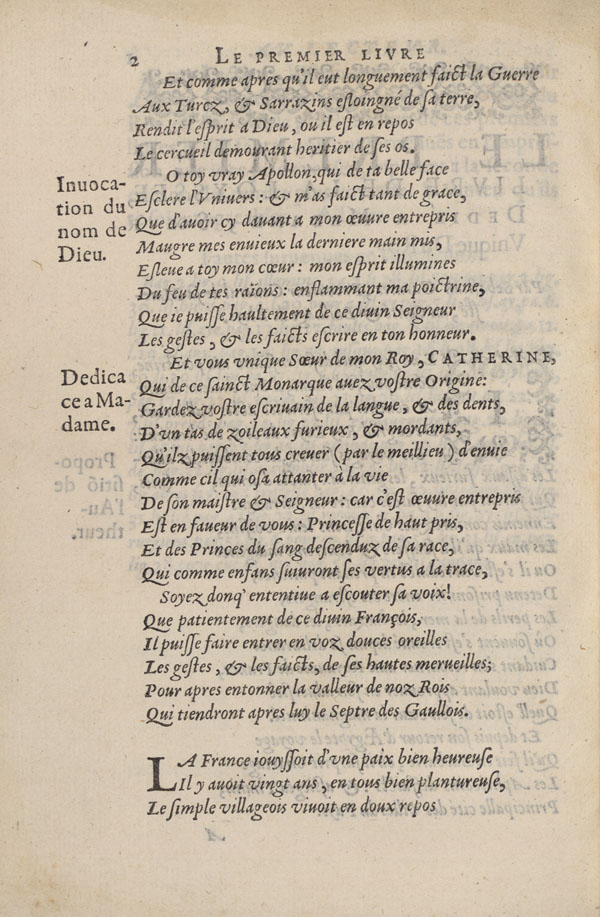 2 LE PREMIER LIVRE
Et comme apres qu'il eut longuement faict la Guerre
Aux Turcz, & Sarrazins esloingné de sa terre,
Rendit l'esprit a Dieu, ou il est en repos
Le cercueil demourant heritier de ses os.
O toy vray Apollon, qui de ta belle face
Inuoca-
tion du
nom de
Dieu.
Esclere l'Vniuers: & m'as faict tant de grace,
Que d'auoir cy dauant a mon œuure entrepris
Maugre mes enuieux la derniere main mis,
Esleue a toy mon cœur: mon esprit illumines
Du feu de tes raïons: enflammant ma poictrine,
Que ie puisse haultement de ce diuin Seigneur
Les gestes, & les faicts escrire en ton honneur.
Et vous vnique Sœur de mon Roy, CATHERINE,
Dedica
ce a Ma-
dame.
Qui de ce sainct Monarque auez vostre Origine:
Gardez vostre escriuain de la langue, & des dents,
D'vn tas de zoileaux furieux, & mordants,
Qu'ilz puissent tous creuer (par le meillieu) d'enuie
Comme cil qui osa attanter à la vie
De son maistre & Seigneur: car c'est œuure entrepris
Est en faueur de vous: Princesse de haut pris,
Et des Princes du sang descenduz de sa race,
Qui comme enfans suiuront ses vertus a la trace,
Soyez donq' ententiue a escouter sa voix!
Que patientement de ce diuin François,
Il puisse faire entrer en voz douces oreilles
Les gestes, & les faicts, de ses hautes merueilles;
Pour apres entonner la valleur de noz Rois
Qui tiendront apres luy le Septre des Gaullois.
LA France iouyssoit d'vne paix bien heureuse
Il y auoit vingt ans, en tous bien plantureuse,
Le simple villageois viuoit en doux repos